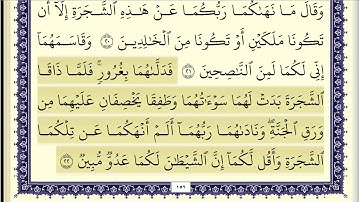 وَقَالَ مَا نَهَىٰكُمَا رَبُّكُمَا عَنْ هَـٰذِهِ ٱلشَّجَرَةِ إِلَّآ أَن
تَكُونَا مَلَكَيْنِ أَوْ تَكُونَا مِنَ ٱلْخَـٰلِدِينَ ٢٠ وَقَاسَمَهُمَآ
إِنِّى لَكُمَا لَمِنَ ٱلنَّـٰصِحِينَ ٢١ فَدَلَّىٰهُمَا بِغُرُورٍۢ ۚ فَلَمَّا ذَاقَا
ٱلشَّجَرَةَ بَدَتْ لَهُمَا سَوْءَٰتُهُمَا وَطَفِقَا يَخْصِفَانِ عَلَيْهِمَا مِن
وَرَقِ ٱلْجَنَّةِ ۖ وَنَادَىٰهُمَا رَبُّهُمَآ أَلَمْ أَنْهَكُمَا عَن تِلْكُمَا
ٱلشَّجَرَةِ وَأَقُل لَّكُمَآ إِنَّ ٱلشَّيْطَـٰنَ لَكُمَا عَدُوٌّۭ مُّبِينٌۭ ٢٢